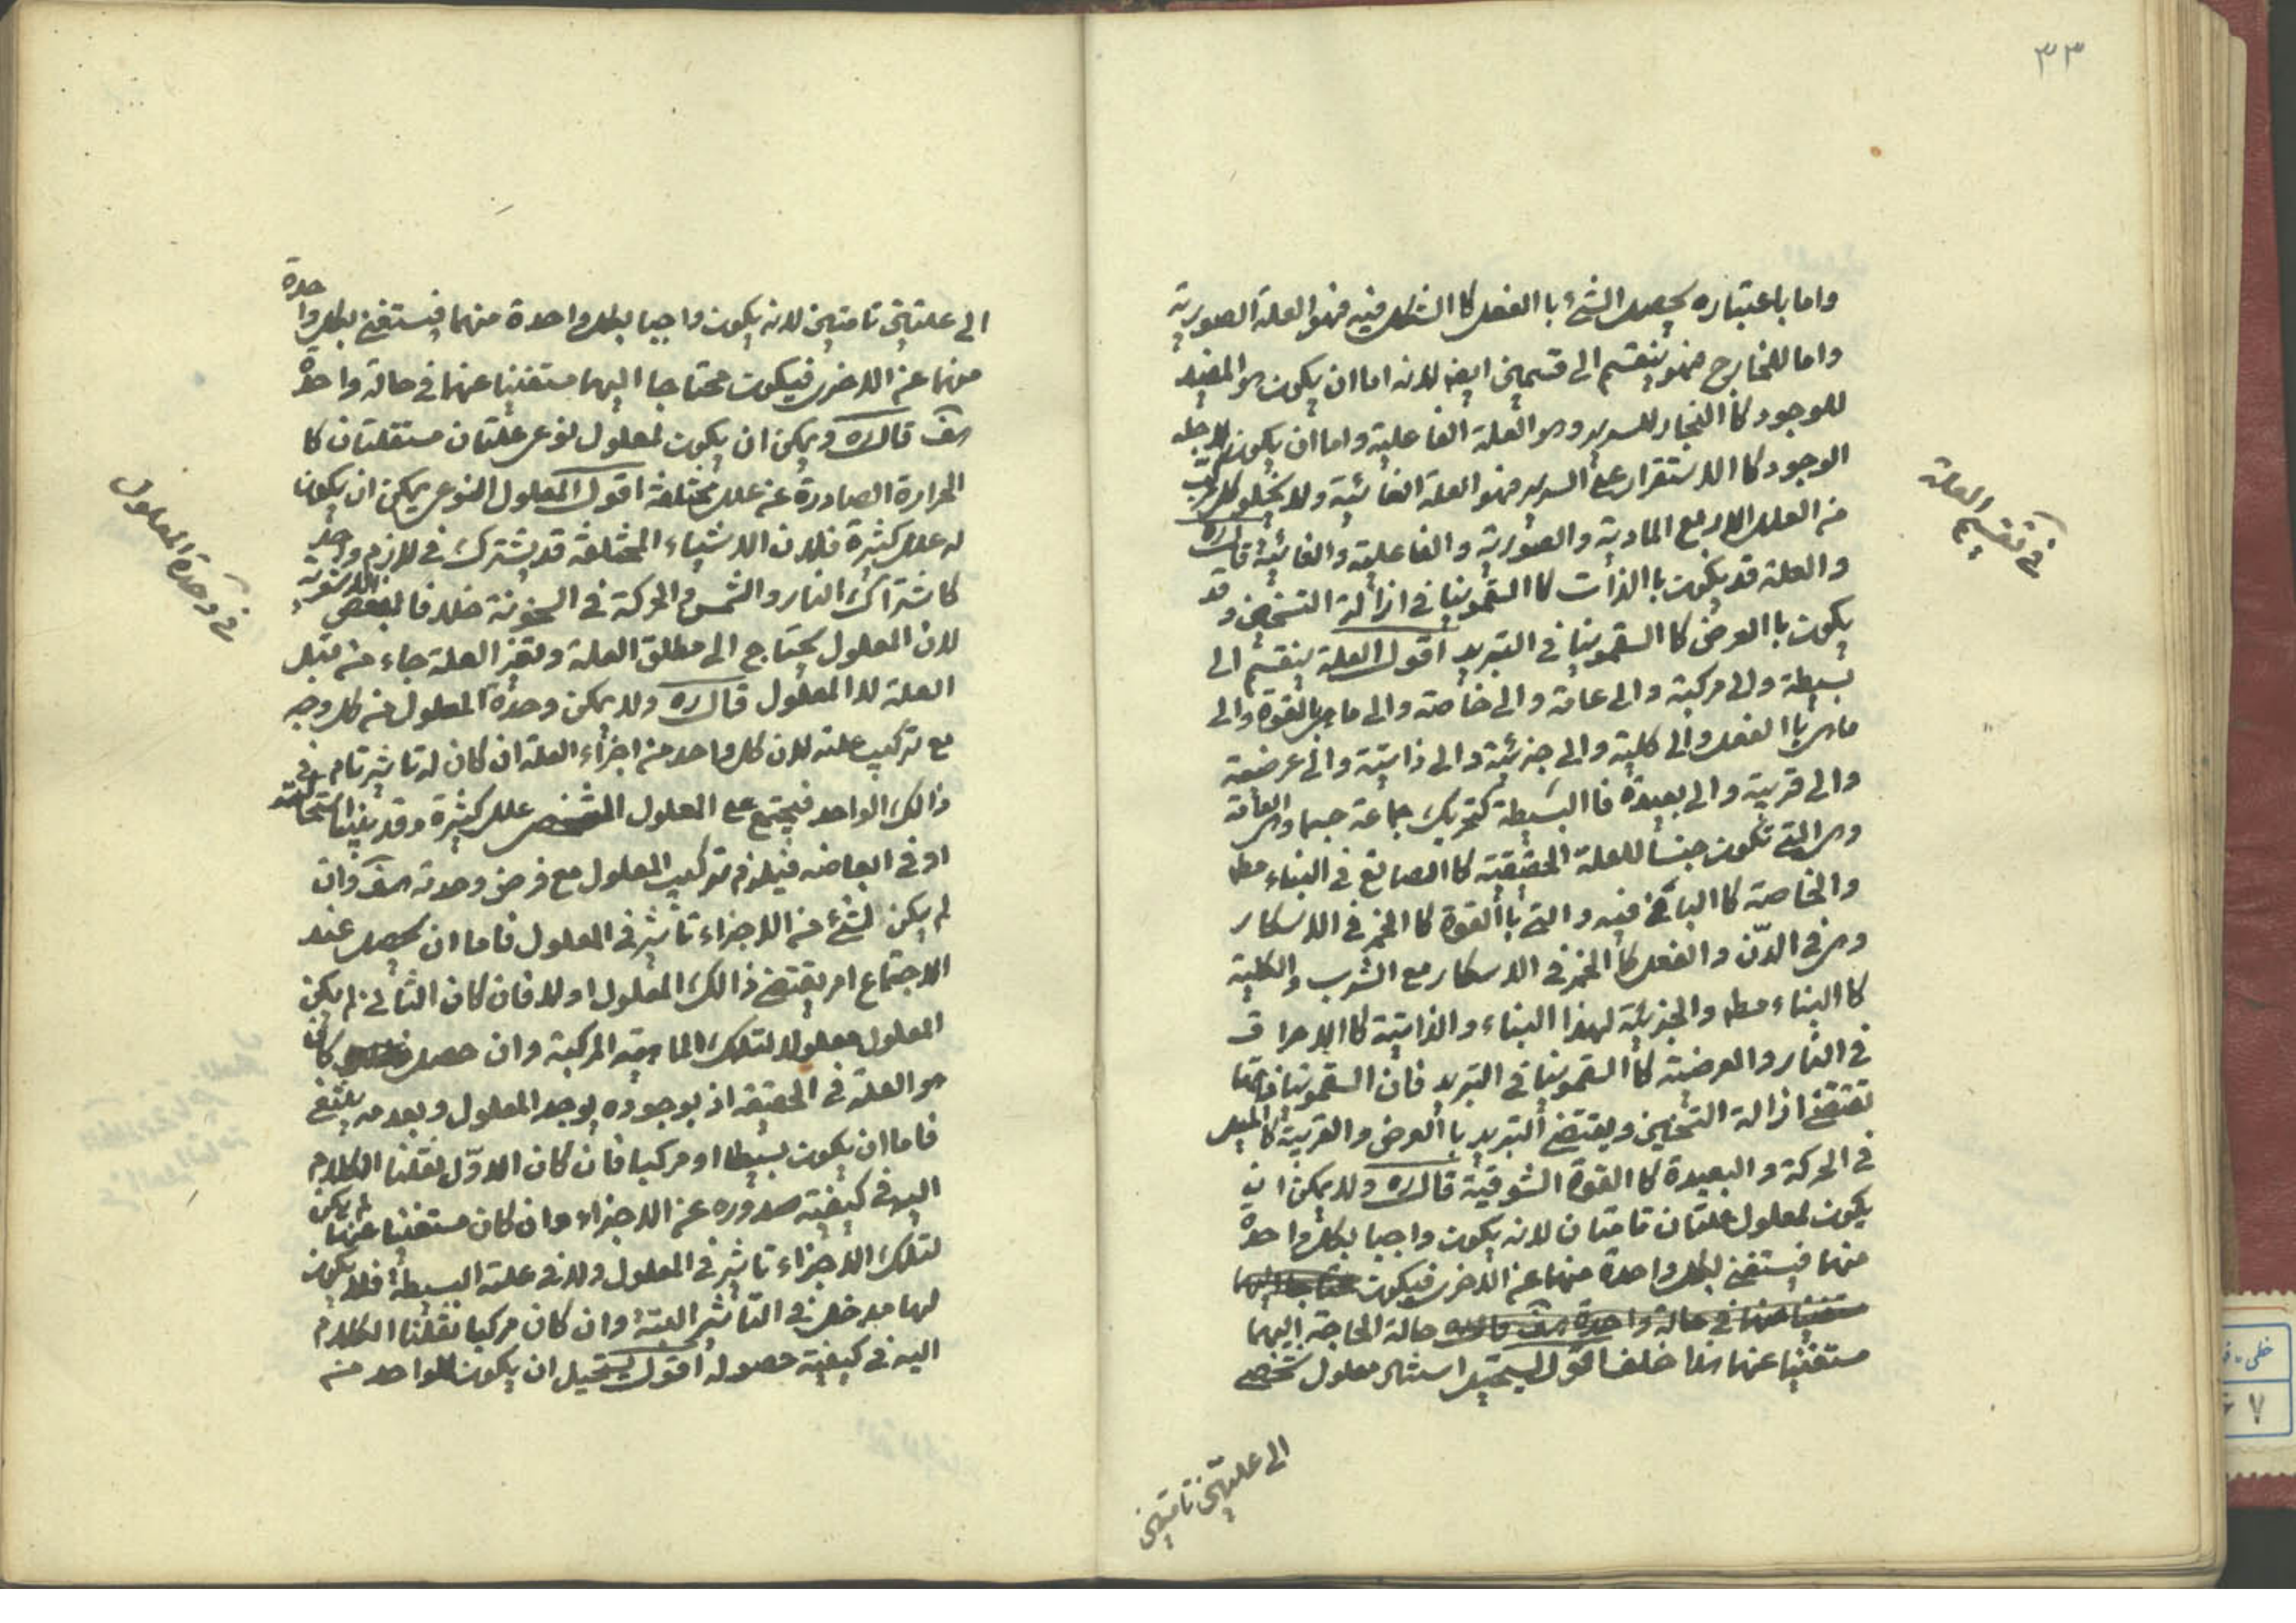 ٣٣
واما باعتباره يحصل الشئ باالفعل كاالشكل فيه فهو العلة الصورية
واما الخارج فهو ينقسم الى قسمين ايض لانه اما ان يكون هو المفيد
للوجود كاالنجار للسرير وهو العلة الفاعلية واما ان يكون لاجله
الوجود كاالاستقرار على السرير فهو العلة الغائية ولا يخلو كل مركب
من العلل الاربع المادية والصورية والفاعلية والغائية قال ره
والعلة قد يكون باالذات كاالسقمونيا فى ازالة التسخين وقد
يكون باالعرض كاالسقمونيا فى التبريد اقول العلة ينقسم الى
بسيطة والى مركبة والى عامة والى خاصة والى ما هى باالقوة والى
ماهى باالفعل والى كلية والى جزئية والى ذاتية والى عرضية
والى قريبة والى بعيدة فاالبسيطة كتحريك جماعة جسما والعامة
وهى التى تكون جنسا للعلة الحقيقية كاالصانع فى البناء مط
والخاصة كاالبانى فيه والتى باالقوة كاالخمر فى الاسكار
وهى فى الدّن والفعل كاالخمر فى الاسكار مع الشرب والكلية
كاالبناء مط والجزئية لهذا البناء والذاتية كاالاحراق
فى النار والعرضية كاالسقمونيا فى التبريد فان السقمونيا
تقتضى ازالة التسخين ويقتضى التبريد باالعرض والقريبة كالميل
فى الحركة والبعيدة كاالقوة الشوقية قال ره ولا يمكن ان
يكون لمعلول علتان تامتان لانه يكون واجبا بكل واحدة
منهما فيستغنى بكل واحدة منهما عن الاخرى فيكون محتاجا اليهما
مستغنيا عنهما فى حالة واحدة هف قال ره حالة الحاجة اليهما
مستغنيا عنهما هذا خلف اقول يستحيل استناد معلول شخصى
الى علتين تامتين
فى تقسيم العلة
الى علتين تامتين لانه يكون واجبا بكل واحدة منهما فيستغنى بكل واحدة
منهما عن الاخرى فيكون محتاجا اليهما مستغنيا عنهما فى حالة واحدة
هف قال ره ويمكن ان يكون لمعلول نوعى علتان مستقلتان كا
الحرارة الصادرة عن علل مختلفة اقول المعلول النوعى يمكن ان يكون
له علل كثيرة فلان الاشياء المختلفة قد يشترك فى لازم واحد
كاشتراك النار والشمس والحركة فى السخونة خلافا لبعض الاشعرية
لان المعلول يحتاج الى مطلق العلة وتعين العلة جاء من قبل
العلة لا المعلول قال ره ولا يمكن وحدة المعلول من كل وجه
مع تركيب علته لان كل واحد من اجزاء العلة ان كان له تاثير تام فى
ذالك الواحد فيجتمع على المعلول الشخصى علل كثيرة وقد بينا استحالته
او فى ابعاضه فيلزم تركيب المعلول مع فرض وحدته هف وان
لم يكن لشئ من الاجزاء تاثير فى المعلول فاما ان يحصل عند
الاجتماع امر يقتضى ذالك المعلول اولا فان كان الثانى لم يكن
المعلول معلولا لتلك الماهية المركبة وان حصل كان
هو العلة فى الحقيقة اذ بوجوده يوجد المعلول وبعدمه ينتفى
فاما ان يكون بسيطا او مركبا فان كان الاوّل نقلنا الكلام
اليه فى كيفية صدوره عن الاجزاء وان كان مستغنيا عنها لم يكن
لتلك الاجزاء تاثير فى المعلول ولا فى علته البسيطة فلا يكون
لها مدخل فى التأثير البتة وان كان مركبا نقلنا الكلام
اليه فى كيفية حصوله اقول يستحيل ان يكون للواحد من
فى وحدة المعلول